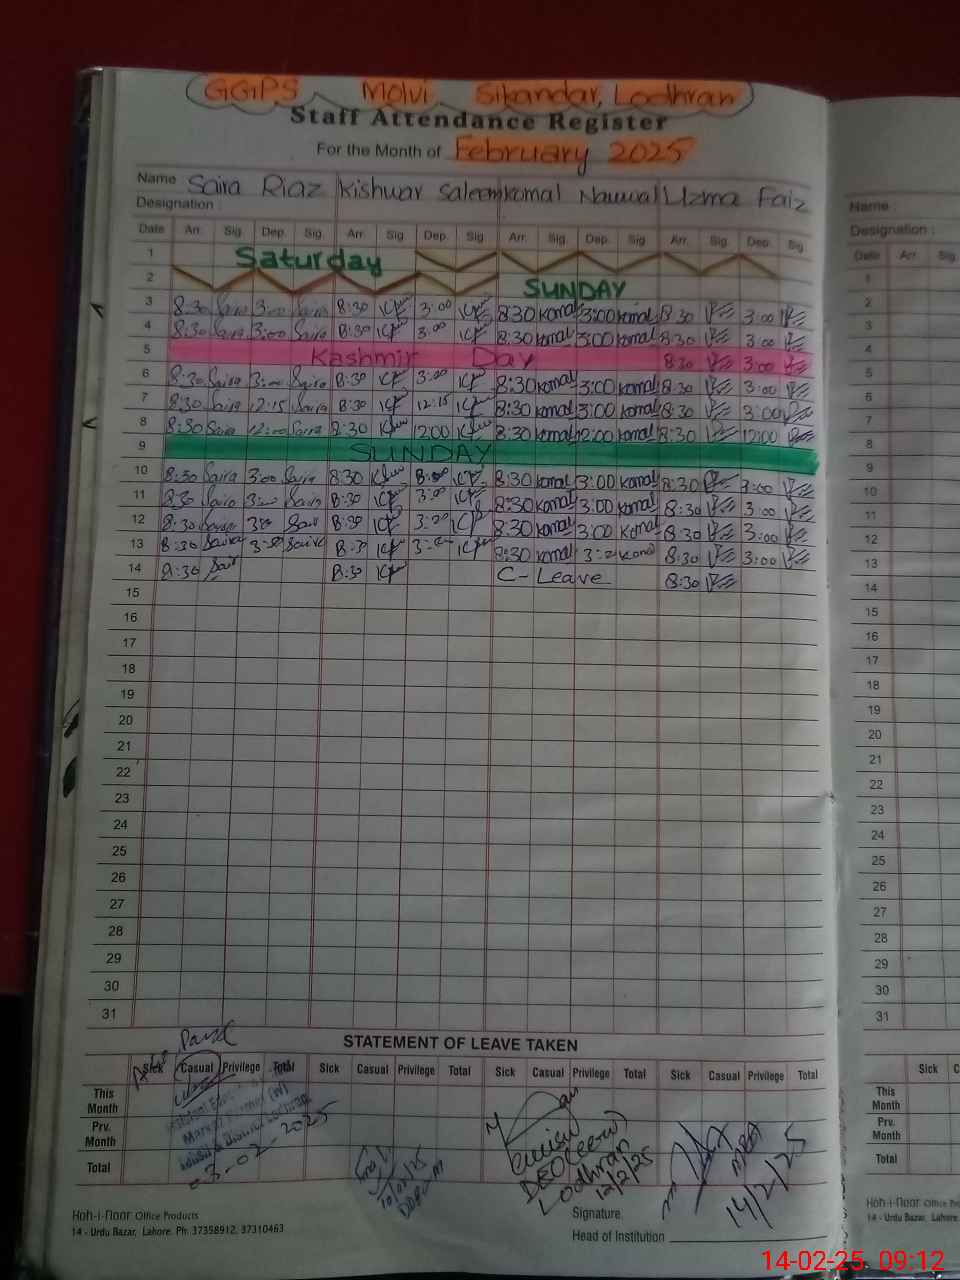 GGPS Molvi Sikandar, Lodhran
Staff Attendance Register
For the Month of February 2025
Name Saira Riaz Kishwar Saleem Komal Nawwal Uzma Faiz
Designation :
Date Arr. Sig. Dep. Sig. Arr. Sig. Dep. Sig. Arr. Sig. Dep. Sig. Arr. Sig. Dep. Sig.
1 Saturday
2 SUNDAY
3 8:30 Saira 3:00 Saira 8:30 3:00 8:30 Komal 3:00 Komal 8:30 3:00
4 8:30 Saira 3:00 Saira 8:30 3:00 8:30 Komal 3:00 Komal 8:30 3:00
5 Kashmir Day 8:30 3:00
6 8:30 Saira 3:00 Saira 8:30 3:00 8:30 Komal 3:00 Komal 8:30 3:00
7 8:30 Saira 12:15 Saira 8:30 12:15 8:30 Komal 3:00 Komal 8:30 3:00
8 8:30 Saira 12:00 Saira 8:30 12:00 8:30 Komal 12:00 Komal 8:30 12:00
9 SUNDAY
10 8:30 Saira 3:00 Saira 8:30 3:00 8:30 Komal 3:00 Komal 8:30 3:00
11 8:30 Saira 3:00 Saira 8:30 3:00 8:30 Komal 3:00 Komal 8:30 3:00
12 8:30 3:00 8:30 3:00 8:30 Komal 3:00 Komal 8:30 3:00
13 8:30 Saira 3:00 Saira 8:30 3:00 8:30 Komal 3:00 Komal 8:30 3:00
14 8:30 8:30 C- Leave 8:30
15
16
17
18
19
20
21
22
23
24
25
26
27
28
29
30
31
STATEMENT OF LEAVE TAKEN
Sick Casual Privilege Total Sick Casual Privilege Total Sick Casual Privilege Total Sick Casual Privilege Total
This Month
Prv. Month
Total
03-02-2025
10/02/25
DEO (
Lodhran
12/2/25
MEA
14/2/25
Signature.
Head of Institution
Hoh-i-Noor Office Products
14 - Urdu Bazar, Lahore. Ph: 37358912, 37310463
Name :
Designation :
Date Arr. Sig.
1
2
3
4
5
6
7
8
9
10
11
12
13
14
15
16
17
18
19
20
21
22
23
24
25
26
27
28
29
30
31
Sick
This Month
Prv. Month
Total
Hoh-i-Noor Office
14 - Urdu Bazar, Lahore.
14-02-25 09:12